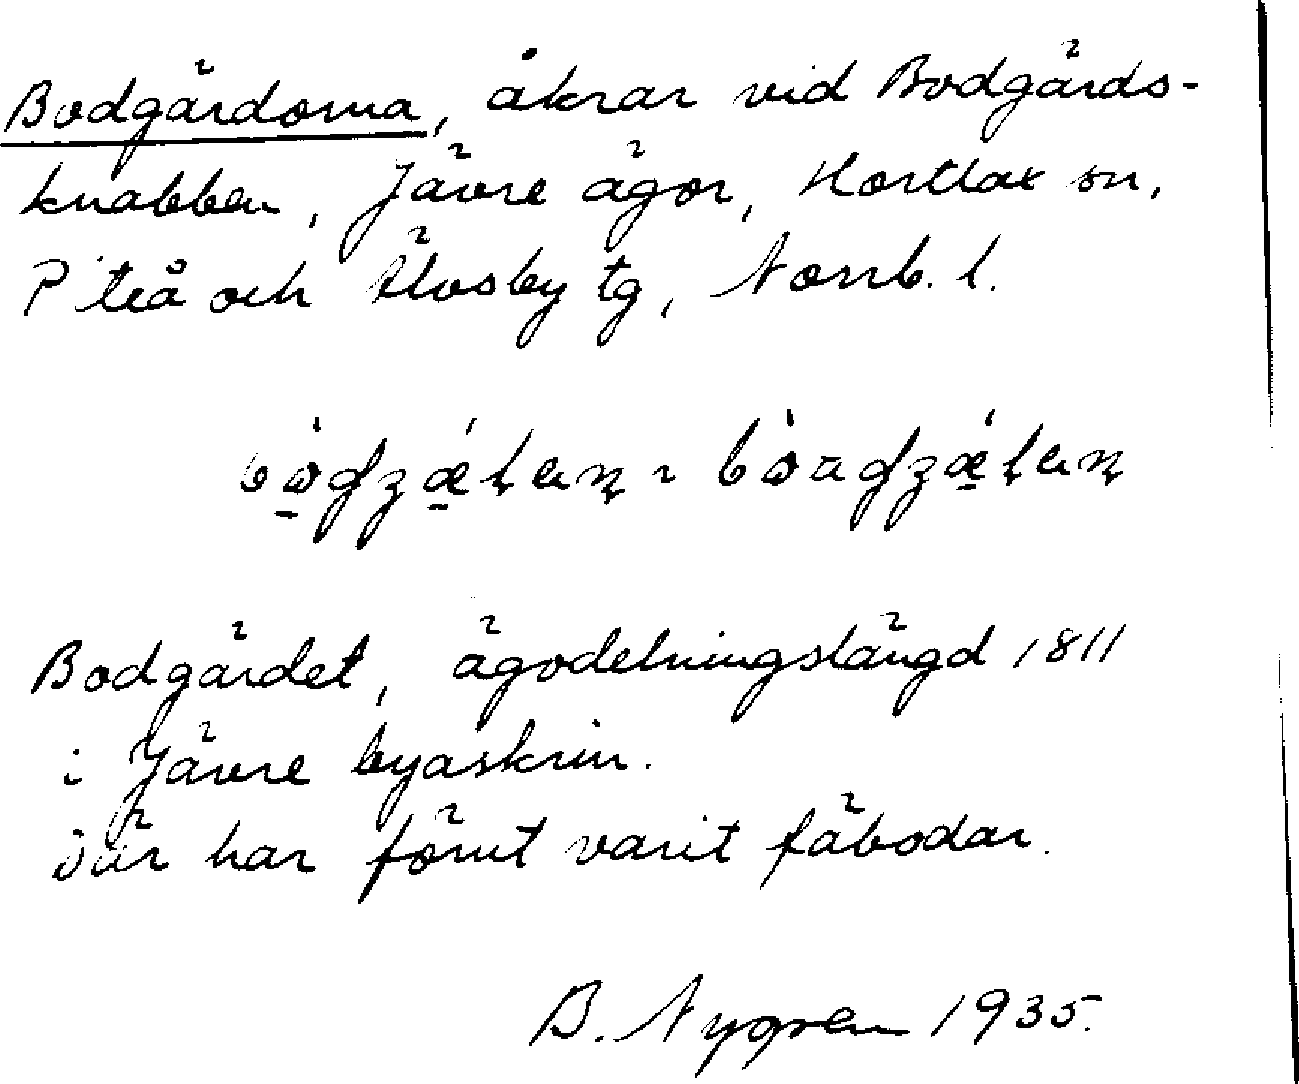 Bodgärdorna, åkrar vid Bodgärds-
knabben, Jävre ägor, Hortlax sn,
Piteå och Älvsby tg, Norrb. l.
Bodgärdet, ägodelningslängd 1811
i Jävre byaskrin.
Där har förut varit fäbodar.
B. Nygren 1935.